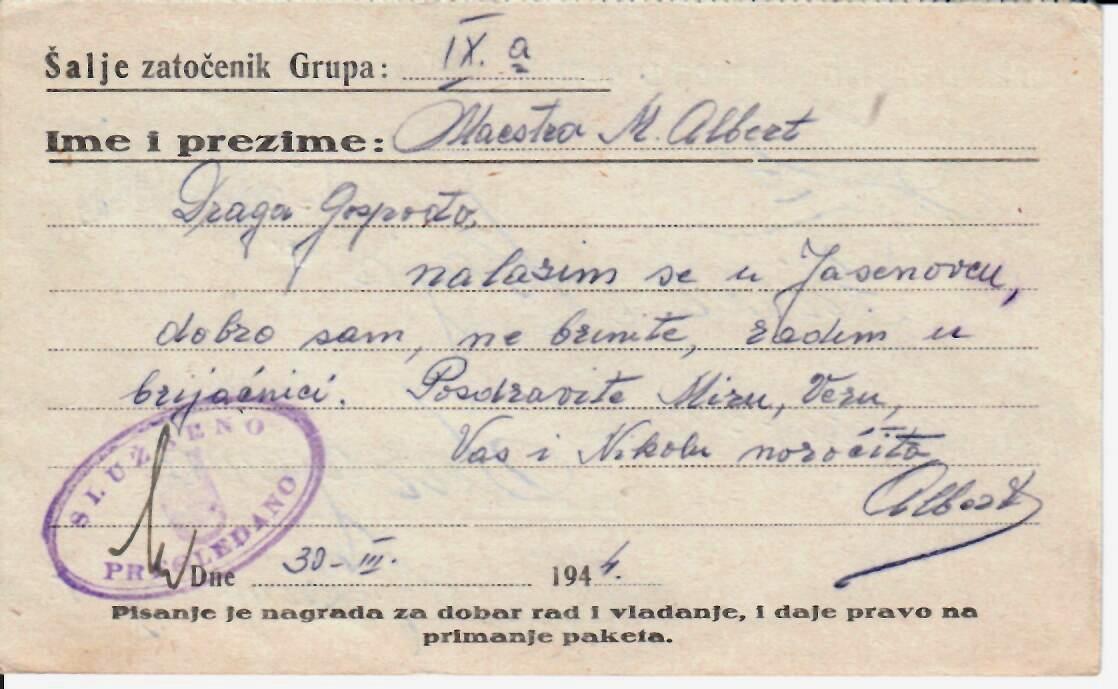 Šalje zatočenik Grupa: IX. a
Ime i prezime: Maestro M. Albert
Draga Gospođo,
nalazim se u Jasenovcu,
dobro sam, ne brinite, radim u
brijačnici. Pozdravite Miru, Veru,
Vas i Nikolu naročito
Albert
SLUŽBENO
PREGLEDANO
Dne 30-III. 1944.
Pisanje je nagrada za dobar rad i vladanje, i daje pravo na
primanje paketa.